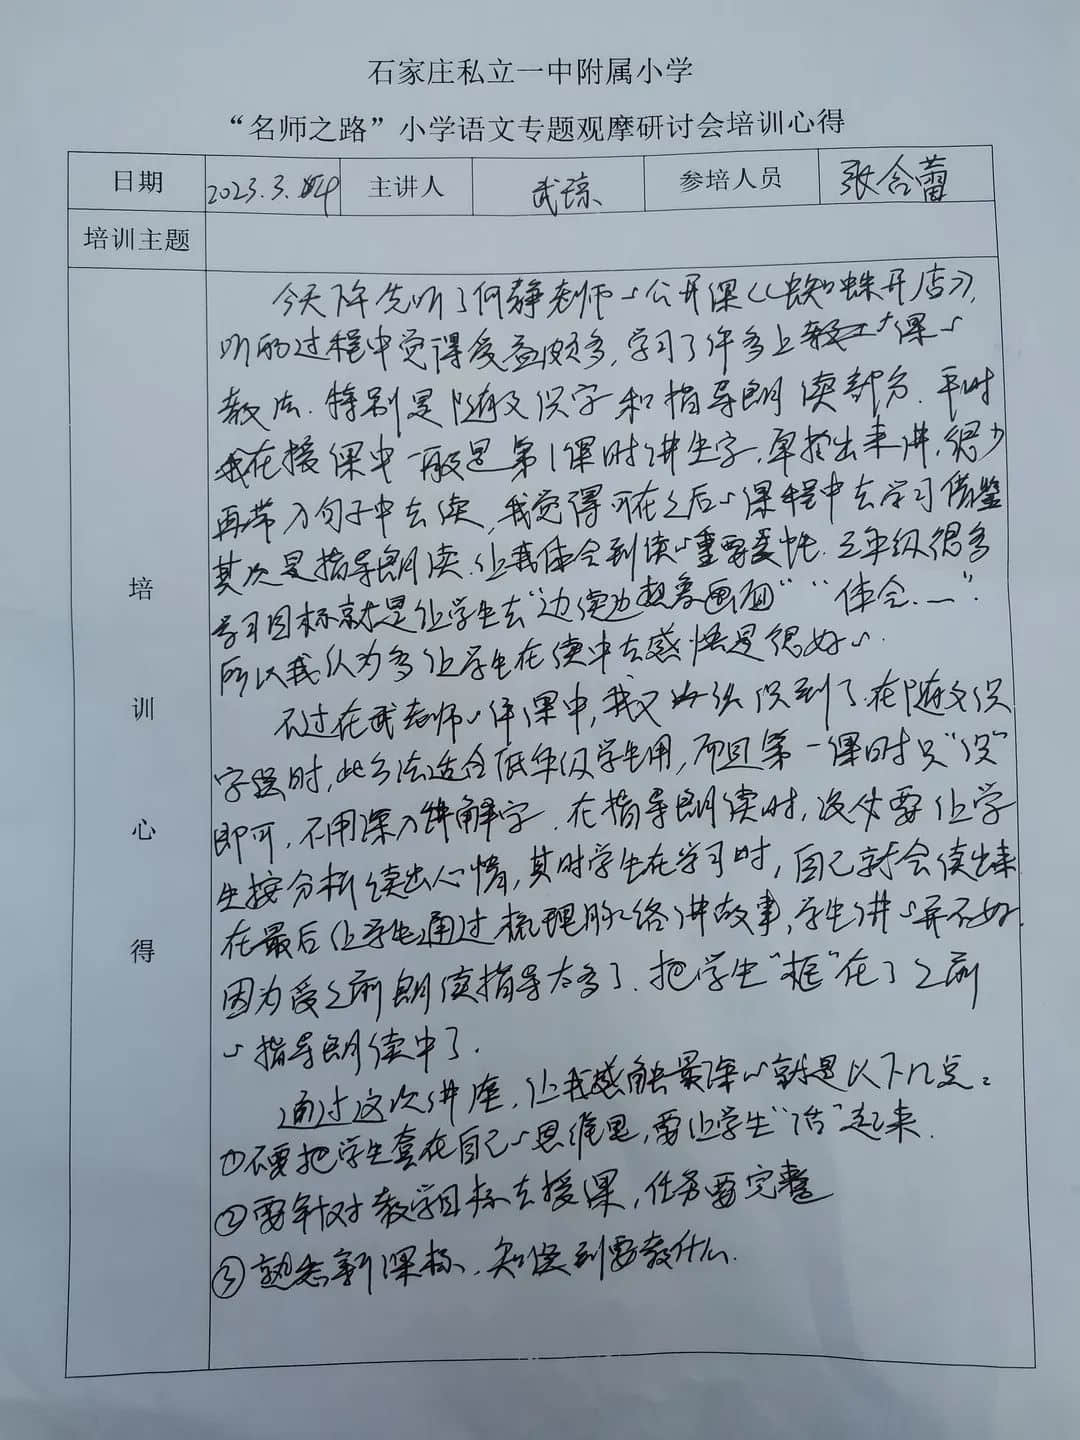 石家庄私立一中附属小学
“名师之路”小学语文专题观摩研讨会培训心得
日期 2023.3.4 主讲人 武琼 参培人员 张含蕾
培训主题
培训心得
今天下午先听了何静老师的公开课《蜘蛛开店》,
听的过程中觉得受益颇多,学习了许多上课的
教法.特别是随文识字和指导朗读部分.平时
我在授课中一般是第1课时讲生字,单拎出来讲,很少
再带入句子中去读,我觉得可在之后的课程中去学习借鉴
其次是指导朗读.让我体会到读的重要性.三年级很多
学习目标就是让学生去“边读边想象画面”“体会……”.
所以我认为多让学生在读中去感悟是很好的.
不过在武老师的评课中,我又认识到了.在随文识
字时,此方法适合低年级学生用,而且第一课时只“识”
即可,不用深入讲解字.在指导朗读时,没必要让学
生按分析读出心情,其时学生在学习时,自己就会读出来
在最后让学生通过梳理脉络讲故事,学生讲的并不好.
因为受之前朗读指导太多了.把学生“框”在了之前
的指导朗读中了.
通过这次讲座,让我感触最深的就是以下几点:
①不要把学生套在自己的思维里,要让学生“活”起来.
②要针对教学目标去授课,任务要完整
③熟悉新课标,知道到要教什么.